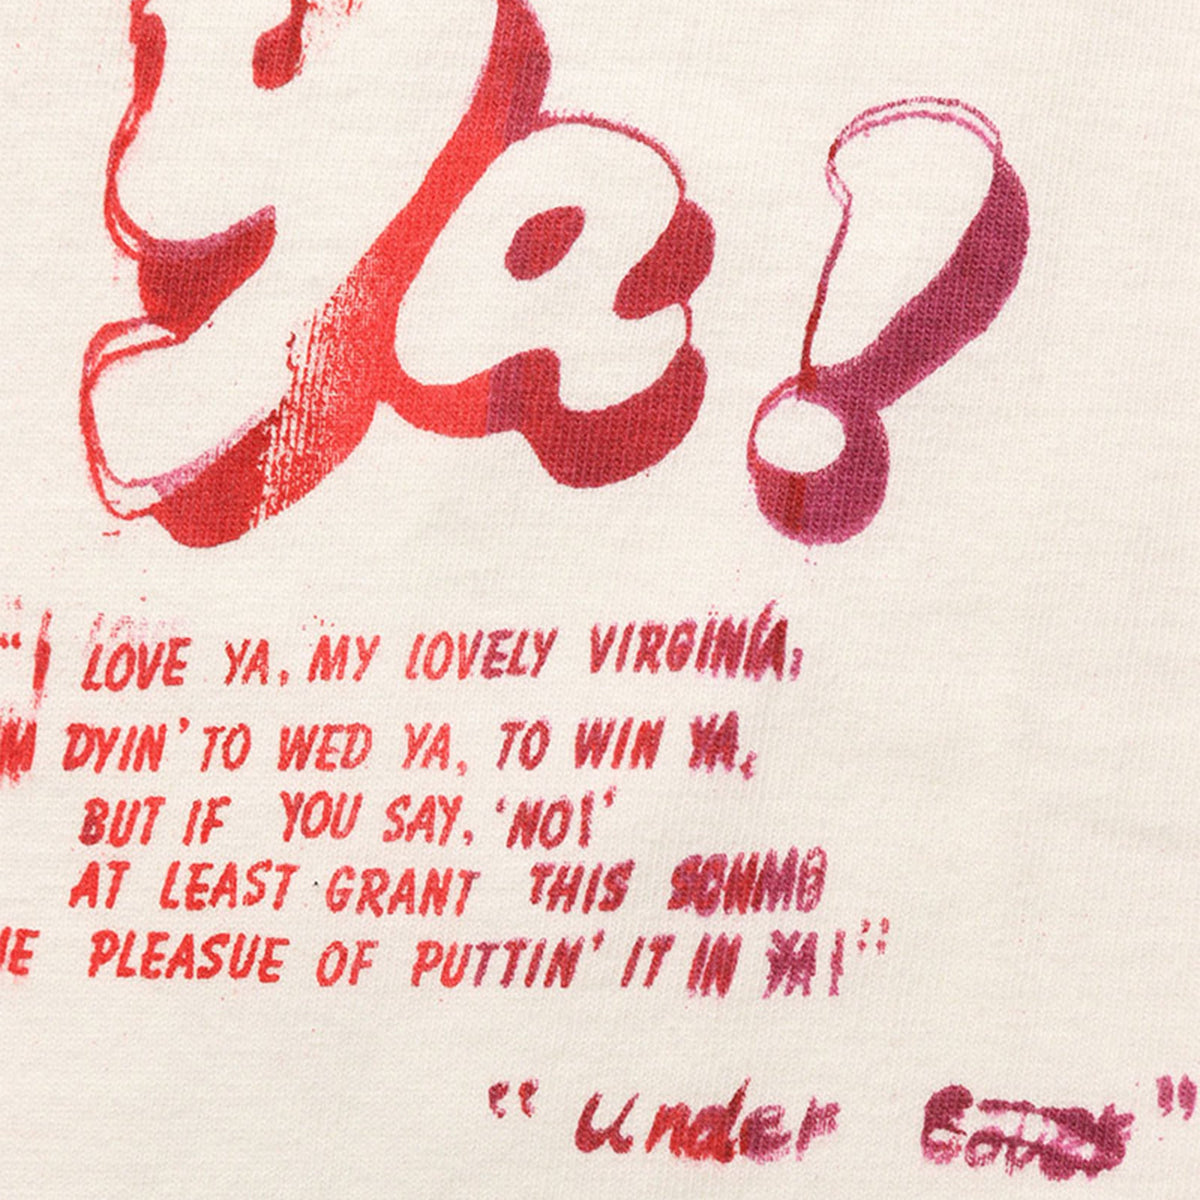 Ya!
"I LOVE YA, MY LOVELY VIRGINIA,
M DYIN' TO WED YA, TO WIN YA,
BUT IF YOU SAY, 'NO!'
AT LEAST GRANT THIS SCHMO
HE PLEASUE OF PUTTIN' IT IN YA!"
"Under